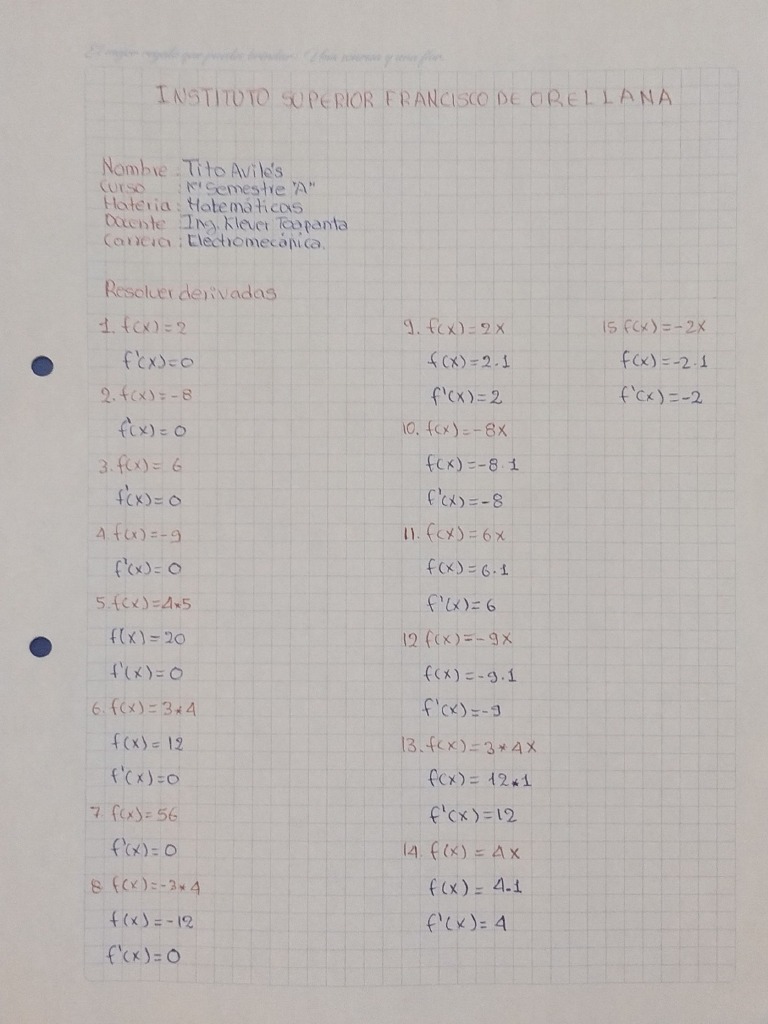 El mejor regalo que puedes brindar: Una sonrisa y una flor.
INSTITUTO SUPERIOR FRANCISCO DE ORELLANA
Nombre : Tito Avilés
Curso : 1er Semestre "A"
Materia : Matemáticas
Docente : Ing. Klever Toapanta
Carrera : Electromecánica.
Resolver derivadas
1. f(x)=2
f'(x)=0
2. f(x)=-8
f'(x)=0
3. f(x)=6
f'(x)=0
4. f(x)=-9
f'(x)=0
5. f(x)=4*5
f(x)=20
f'(x)=0
6. f(x)=3*4
f(x)=12
f'(x)=0
7. f(x)=56
f'(x)=0
8 f(x)=-3*4
f(x)=-12
f'(x)=0
9. f(x)=2x
f(x)=2.1
f'(x)=2
10. f(x)=-8x
f(x)=-8.1
f'(x)=-8
11. f(x)=6x
f(x)=6.1
f'(x)=6
12 f(x)=-9x
f(x)=-9.1
f'(x)=-9
13. f(x)=3*4x
f(x)=12*1
f'(x)=12
14. f(x)=4x
f(x)=4.1
f'(x)=4
15 f(x)=-2x
f(x)=-2.1
f'(x)=-2